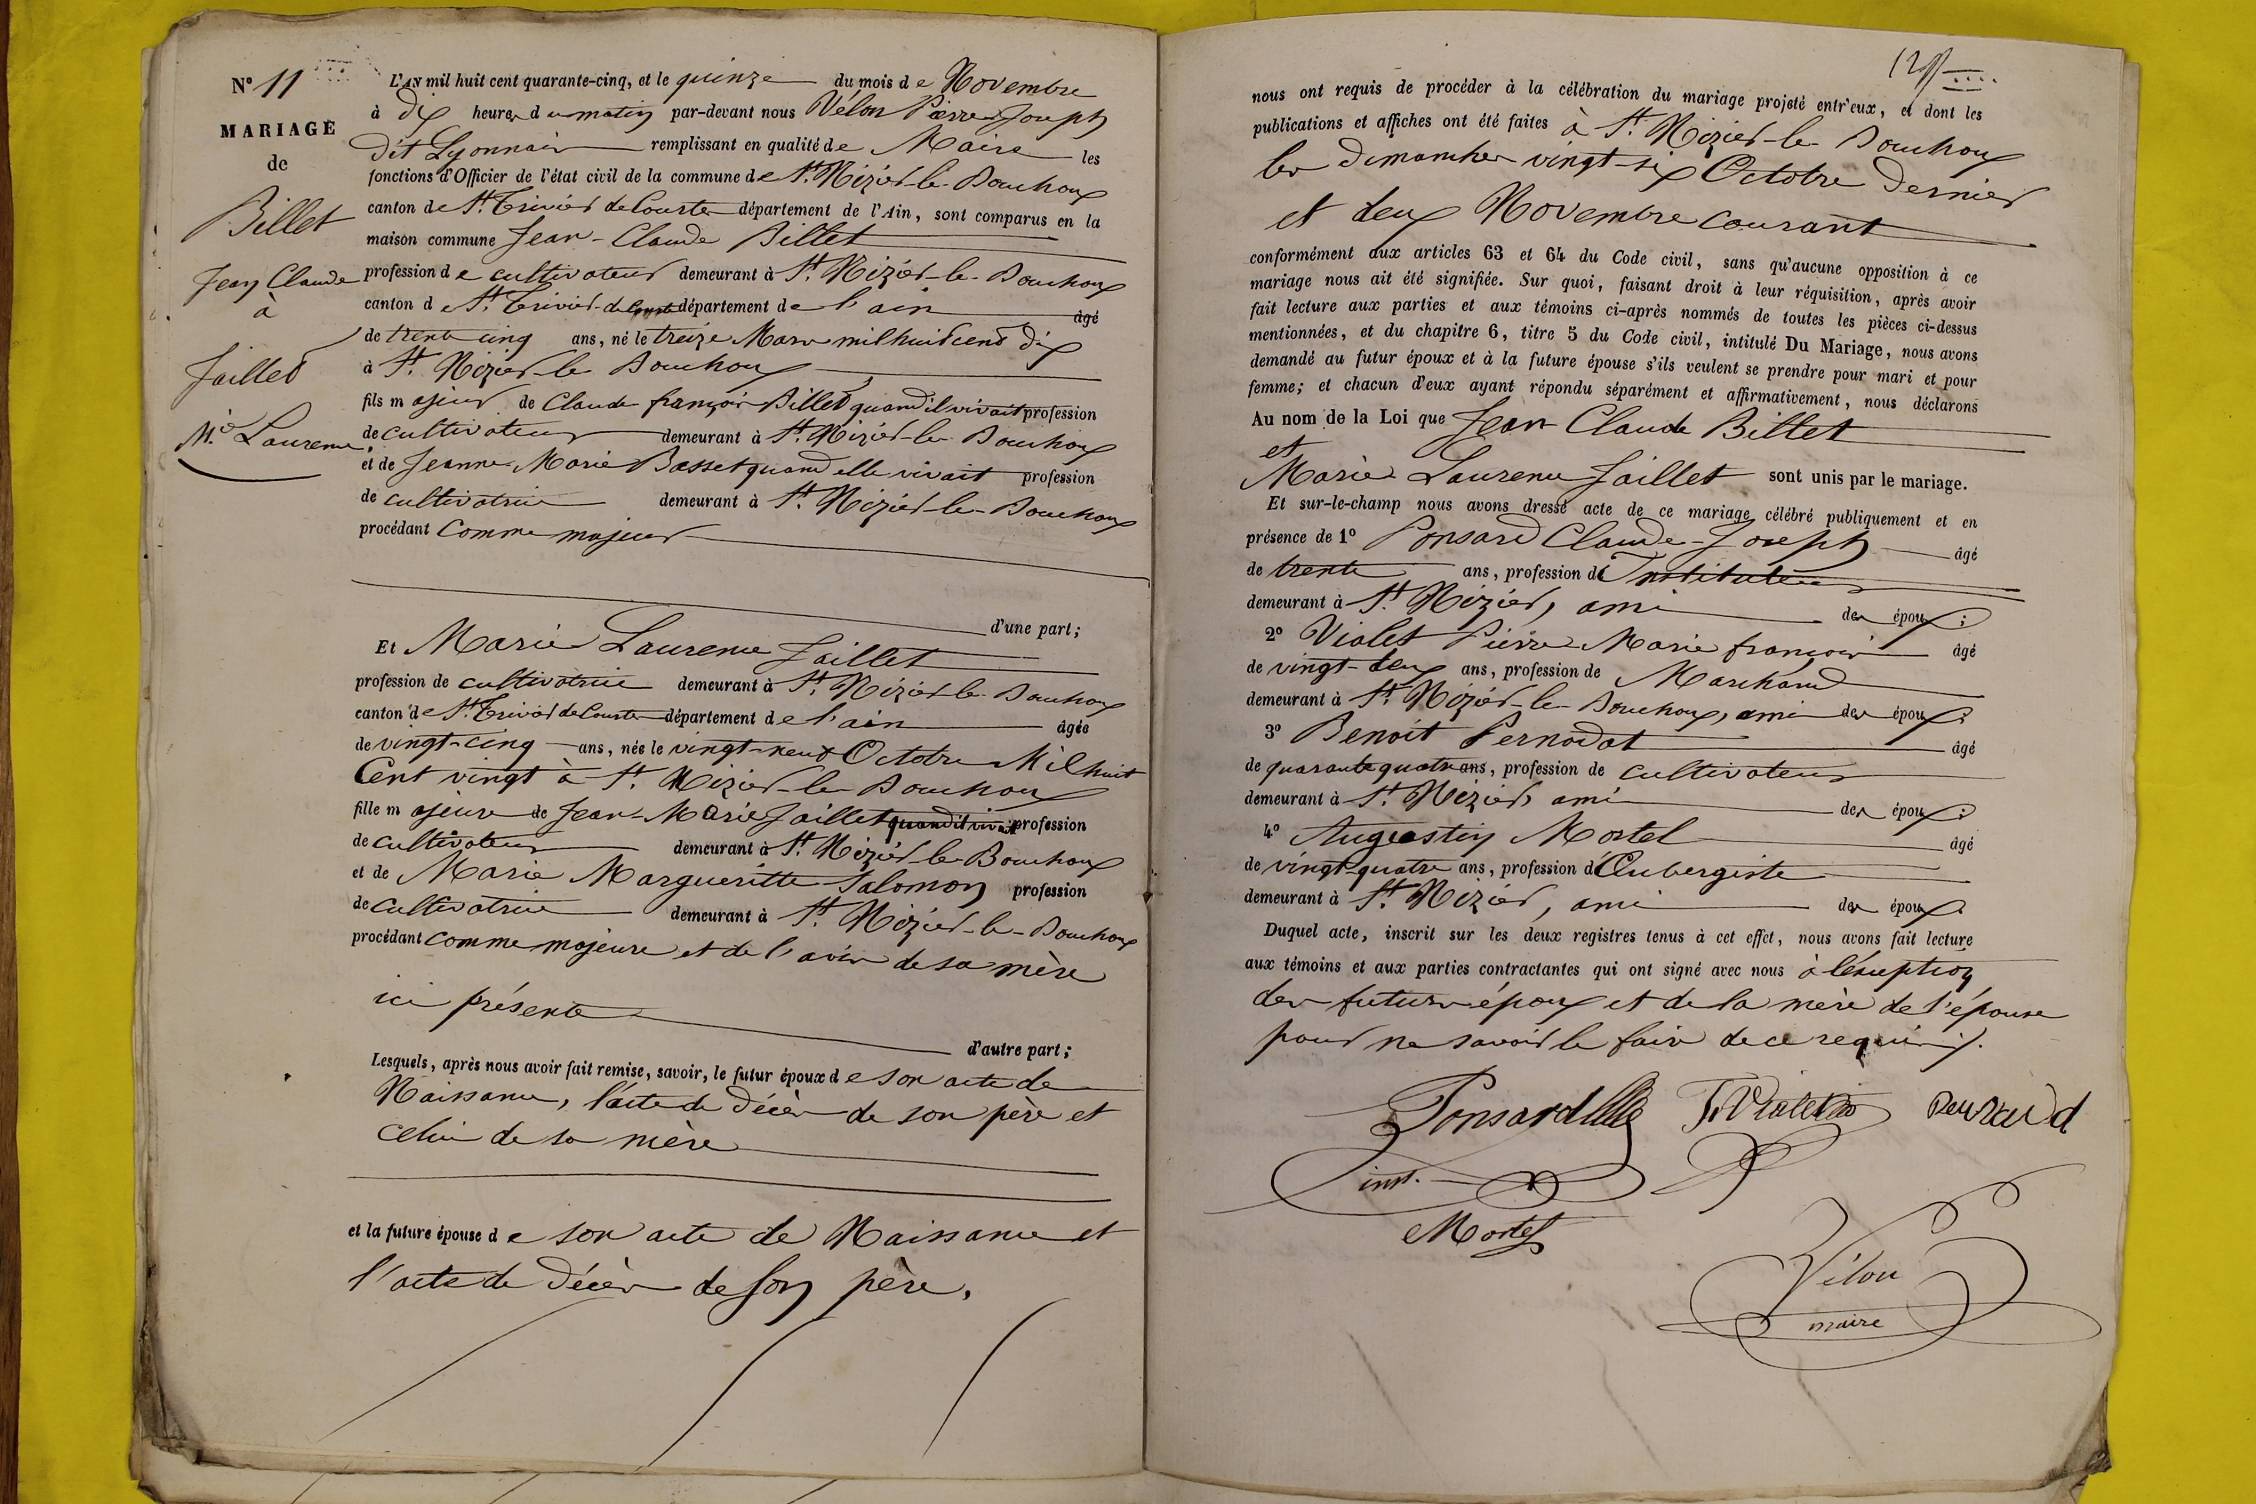 N° 11
MARIAGE
de
Billet
Jean Claude
à
Jaillet
M.ie Laurence
L'AN mil huit cent quarante-cinq, et le quinze du mois de Novembre
à dix heures du matin par-devant nous Vélon Pierre Joseph
dit Lyonnais remplissant en qualité de Maire les
fonctions d'Officier de l'état civil de la commune de St. Nizier-le-Bouchoux
canton de St. Trivier de Courtes département de l'Ain, sont comparus en la
maison commune Jean-Claude Billet
profession de cultivateur demeurant à St. Nizier-le-Bouchoux
canton de St. Trivier-de Courtes département de l'ain âgé
de trente cinq ans, né le treize Mars mil huit cent dix
à St. Nizier-le Bouchoux
fils majeur de Claude françois Billet quand il vivait profession
de cultivateur demeurant à St. Nizier-le-Bouchoux
et de Jeanne-Marie Basset quand elle vivait profession
de cultivatrice demeurant à St. Nizier-le-Bouchoux
procédant comme majeur
d'une part;
Et Marie Laurence Jaillet
profession de cultivatrice demeurant à St. Nizier-le-Bouchoux
canton de St. Trivier de Courtes département de l'ain âgée
de vingt-cinq ans, née le vingt-neuf Octobre Mil huit
Cent vingt à St. Nizier-le-Bouchoux
fille majeure de Jean-Marie Jaillet quand il vivait profession
de cultivateur demeurant à St. Nizier-le-Bouchoux
et de Marie Margueritte Salomon profession
de cultivatrice demeurant à St. Nizier-le-Bouchoux
procédant comme majeure et de l'avis de sa mère
ici présente
d'autre part;
Lesquels, après nous avoir fait remise, savoir, le futur époux de son acte de
Naissance, l'acte de décès de son père et
celui de sa mère
et la future épouse de son acte de Naissance et
l'acte de décès de son père.
nous ont requis de procéder à la célébration du mariage projeté entr'eux, et dont les
publications et affiches ont été faites à St. Nizier-le-Bouchoux
les dimanches vingt-six Octobre dernier
et deux Novembre courant
conformément aux articles 63 et 64 du Code civil, sans qu'aucune opposition à ce
mariage nous ait été signifiée. Sur quoi, faisant droit à leur réquisition, après avoir
fait lecture aux parties et aux témoins ci-après nommés de toutes les pièces ci-dessus
mentionnées, et du chapitre 6, titre 5 du Code civil, intitulé Du Mariage, nous avons
demandé au futur époux et à la future épouse s'ils veulent se prendre pour mari et pour
femme; et chacun d'eux ayant répondu séparément et affirmativement, nous déclarons
Au nom de la Loi que Jean-Claude Billet
et
Marie Laurence Jaillet sont unis par le mariage.
Et sur-le-champ nous avons dressé acte de ce mariage célébré publiquement et en
présence de 1° Ponsard Claude-Joseph âgé
de trente ans, profession d'Instituteur
demeurant à St. Nizier, ami des époux;
2° Violet Pierre Marie françois âgé
de vingt-deux ans, profession de Marchand
demeurant à St. Nizier-le-Bouchoux, ami des époux;
3° Benoit Pernodat âgé
de quarante quatre ans, profession de cultivateur
demeurant à St. Nizier, ami des époux;
4° Augustin Mortel âgé
de vingt-quatre ans, profession d'Aubergiste
demeurant à St. Nizier, ami des époux.
Duquel acte, inscrit sur les deux registres tenus à cet effet, nous avons fait lecture
aux témoins et aux parties contractantes qui ont signé avec nous à l'éxception
des futurs époux et de la mère de l'épouse
pour ne savoir le faire de ce requis.
Ponsard
inst.
Mortel
Vélon
maire